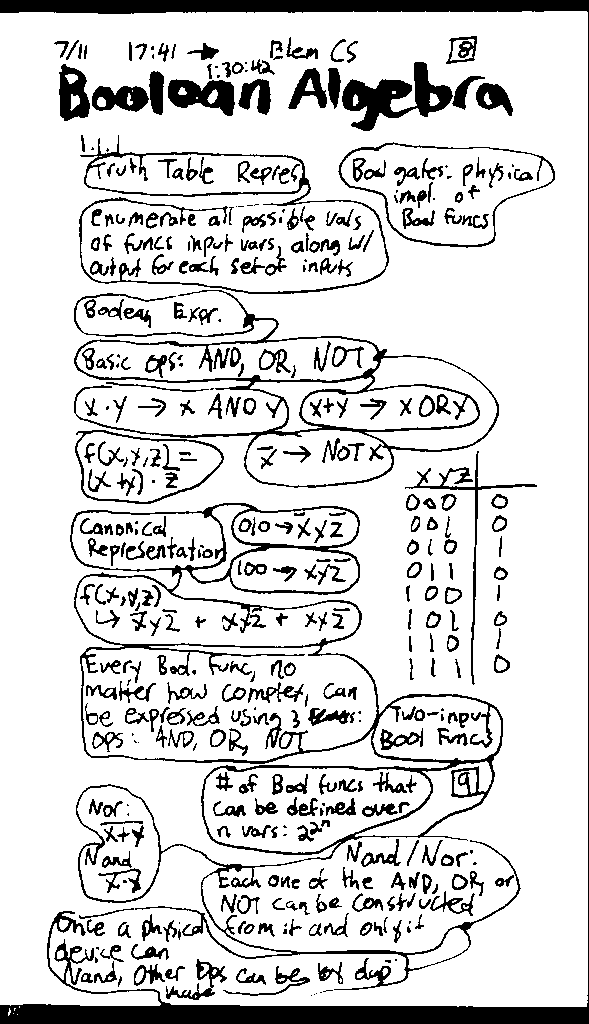 7/11 17:41 → Elem CS 8
1:30:42
Boolean Algebra
1.1.1
Truth Table Repres.
Bool gates: physical
impl. of
Bool funcs
enumerate all possible vals
of funcs input vars, along w/
output for each set of inputs
Boolean Expr.
Basic ops: AND, OR, NOT
x·y → x AND y
x+y → x OR y
f(x,y,z) =
(x+y)·z̅
x̅ → NOT x
x y z
0 0 0 0
0 0 1 0
0 1 0 1
0 1 1 0
1 0 0 1
1 0 1 0
1 1 0 1
1 1 1 0
Canonical
Representation
010 → x̅yz̅
100 → xy̅z̅
f(x,y,z)
↳ x̅yz̅ + xy̅z̅ + xyz̅
Every Bool. func, no
matter how complex, can
be expressed using 3
ops: AND, OR, NOT
Two-input
Bool Funcs
9
# of Bool funcs that
can be defined over
n vars: 2^2^n
Nor:
x̅+̅y̅
Nand
x̅·̅y̅
Nand/Nor:
Each one of the AND, OR, or
NOT can be constructed
from it and only it
Once a physical
device can
Nand, Other Ops can be by dup
made